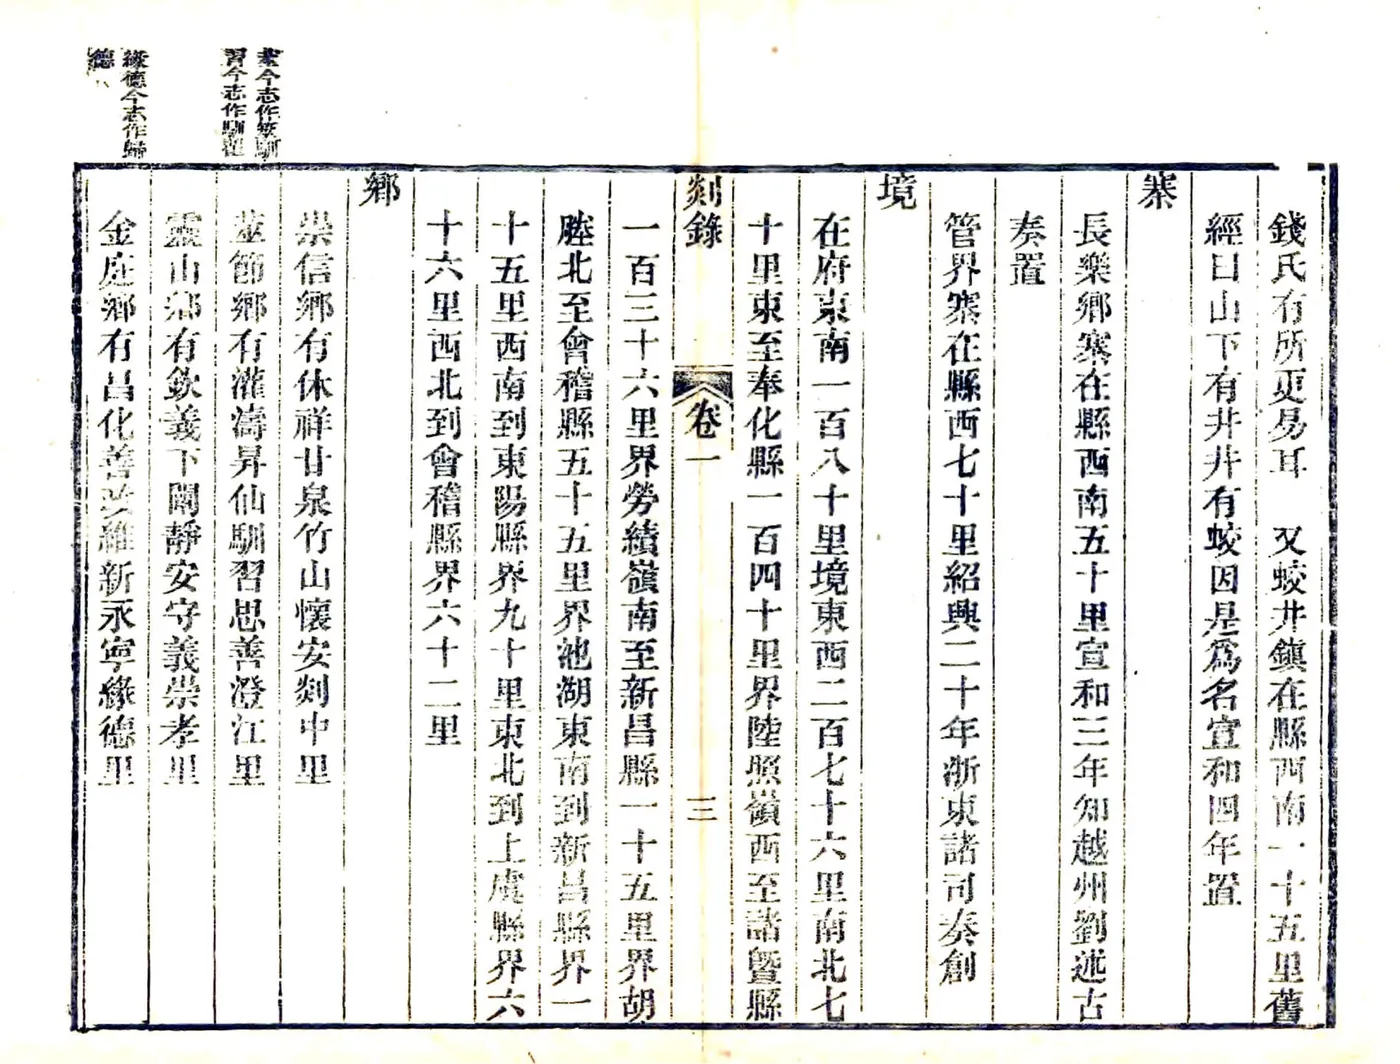 錢氏有所更易耳　又蛟井鎮在縣西南一十五里舊
經曰山下有井井有蛟因是爲名宣和四年置
寨
長樂鄉寨在縣西南五十里宣和三年知越州劉述古
奏置
管界寨在縣西七十里紹興二十年浙東諸司奏創
境
在府東南一百八十里境東西二百七十六里南北七
十里東至奉化縣一百四十里界陸照嶺西至諸曁縣
剡錄
卷一
三
一百三十六里界勞績嶺南至新昌縣一十五里界胡
塍北至會稽縣五十五里界池湖東南到新昌縣界一
十五里西南到東陽縣界九十里東北到上虞縣界六
十六里西北到會稽縣界六十二里
鄉
崇信鄉有休祥廿泉竹山懷安剡中里
莖節鄉有灌濤昇仙馴習思善澄江里
靈山鄉有欽義下闞靜安守義崇孝里
金庭鄉有昌化善政維新永寧緣德里
今志作馴
習今志作馴
緣德今志作歸
德